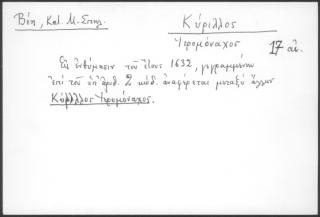 Βέη, Κατ. Μ. Σταγ.
Κύριλλος
Ἱερομόναχος
17 αἰ.
Εἰς ἐνθύμησιν τοῦ ἔτους 1632, γεγραμμένην
ἐπὶ τοῦ ὑπ' ἀριθ. 2 κώδ. ἀναφέρεται μεταξὺ ἄλλων
Κύριλλος Ἱερομόναχος.